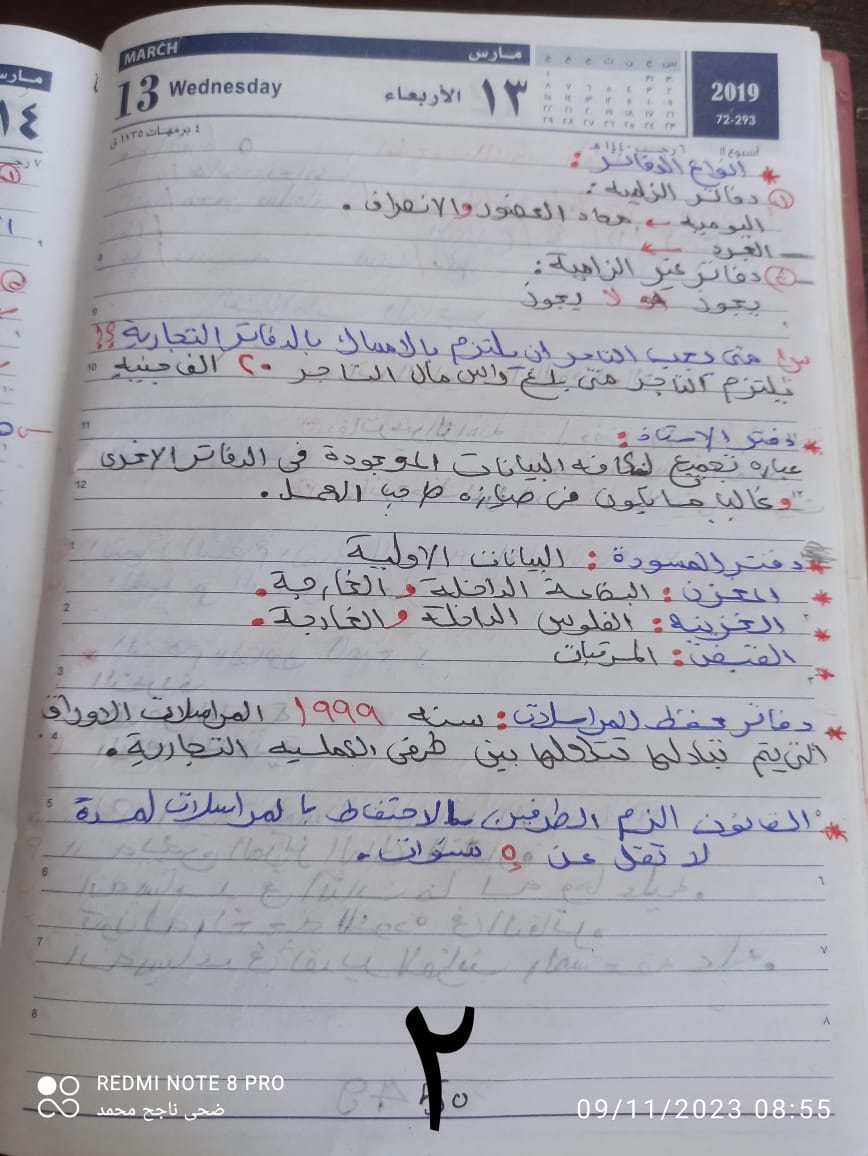 MARCH
مارس
13 Wednesday
١٣ الأربعاء
2019
72-293
٤ برمهات ١٧٣٥ ق
أسبوع ١١
* انواع الدفاتر :
① دفاتر الزامية :
اليومية ← معاد الحضور والانصراف .
الجرد ←
② دفاتر غير الزامية :
يجوز او لا يجوز
س/ متى يجب التاجر ان يلتزم بالامساك بالدفاتر التجارية ؟!
يلتزم التاجر متى بلغ راس مال التاجر ٢٠ الف جنيه
* دفتر الاستاذ :
عباره تجميع لكافه البيانات الموجودة فى الدفاتر الاخرى
وغالبا ما يكون فى حيازه صاحب العمل .
* دفتر المسودة : البيانات الاولية
* المخزن : البضاعة الداخلة و الخارجة .
* الخزينه : الفلوس الداخلة و الخارجة .
* القبض : المرتبات
* دفاتر حفظ المراسلات : سنه ١٩٩٩ المراسلات الاوراق
التى يتم تبادلها بين طرفى العمليه التجارية .
* القانون الزم الطرفين بالاحتفاظ بالمراسلات لمدة
لا تقل عن ٥ سنوات .
٢
REDMI NOTE 8 PRO
ضحى ناجح محمد
09/11/2023 08:55